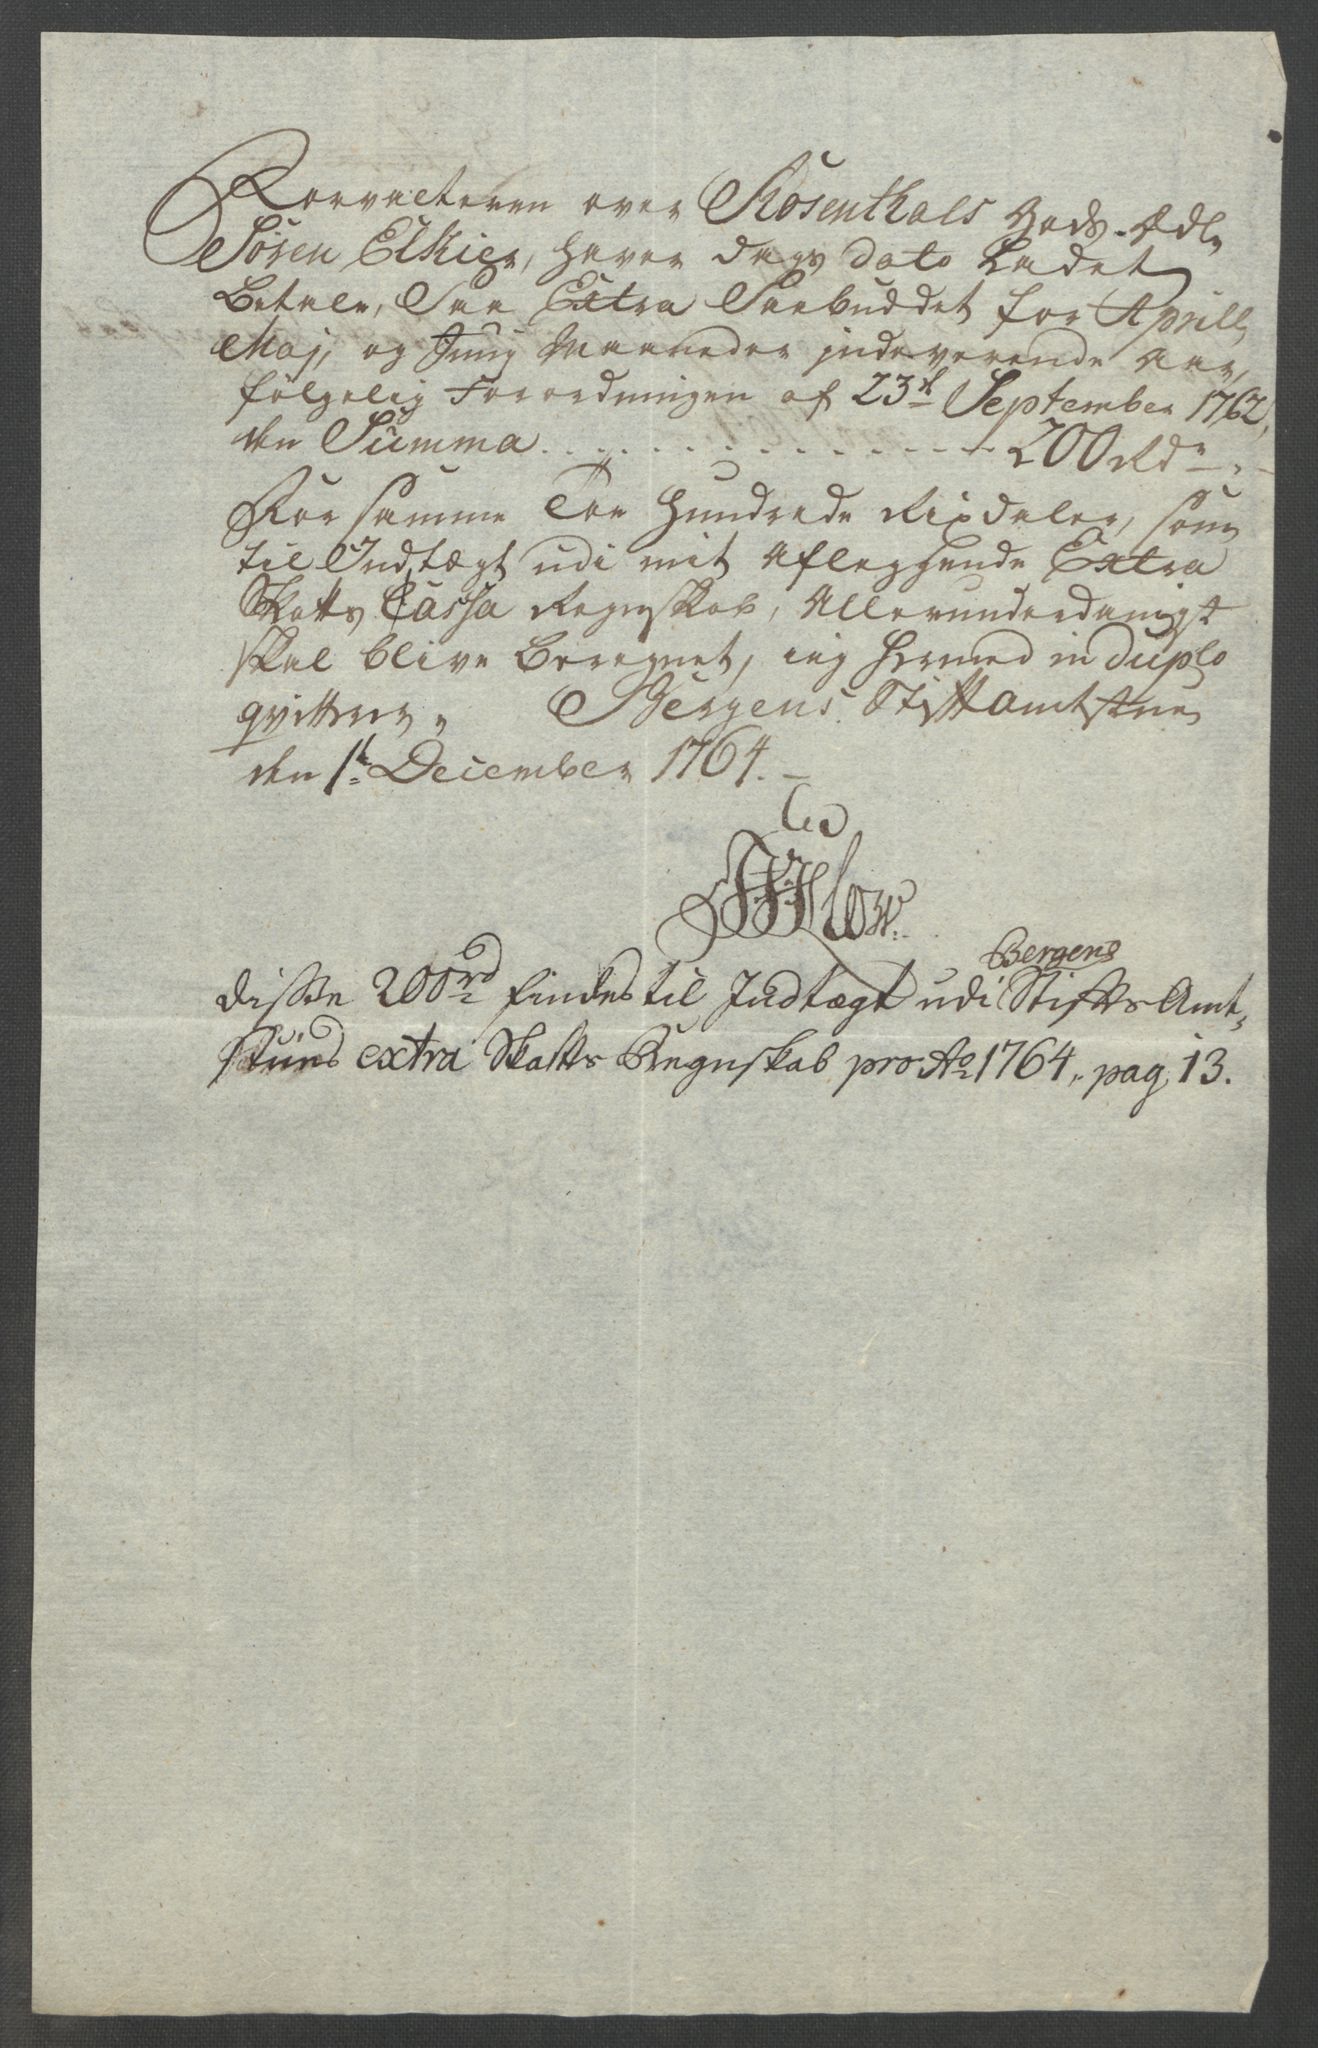 Forvalteren over Rosenthals Gods Ædle
Søren Elkier, haver Dags dato Ladet
Betale, Paa Extra Paabuddet for Aprill,
Maj, og Junij Maaneder indeværende Aar,
følgelig Forordningen af 23de September 1762,
den Summa . . . . . . . . . . . . 200 Rdr
For samme Toe Hundrede Rixdaler, som
til Indtægt udi mit Aflæggende Extra
Skatts Cassa Regnskab, Allerunderdanigst
skal blive Beregnet, ieg Hermed in duplo
qvitterer. Bergens Stiftamtstue
den 1te December 1764.
Bülow.
Disse 200 rd findes til Indtægt udi Bergens Stifts Amt,
stues extra Skatts Regnskab pro Ao 1764, pag. 13.